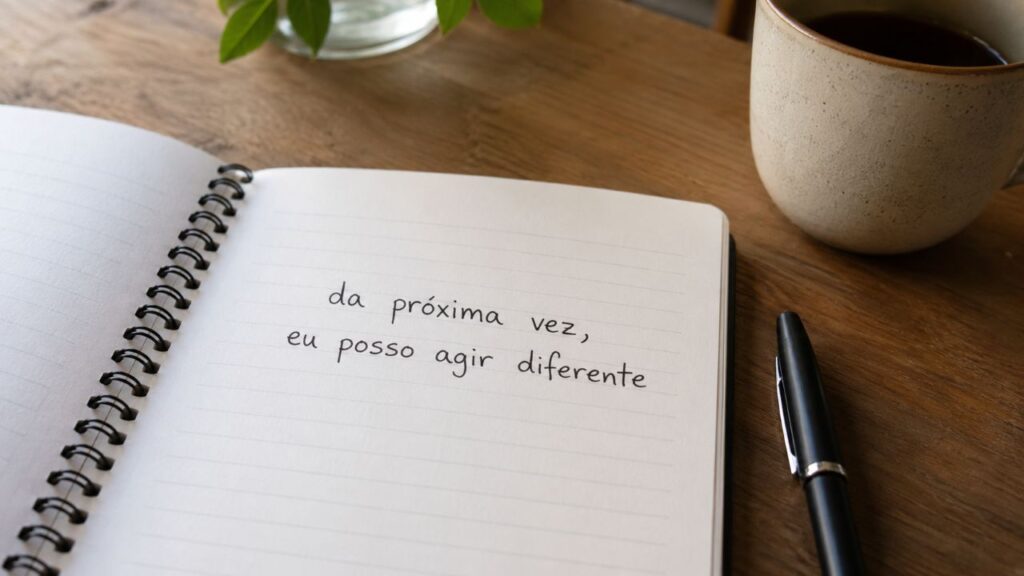 da próxima vez,
eu posso agir diferente